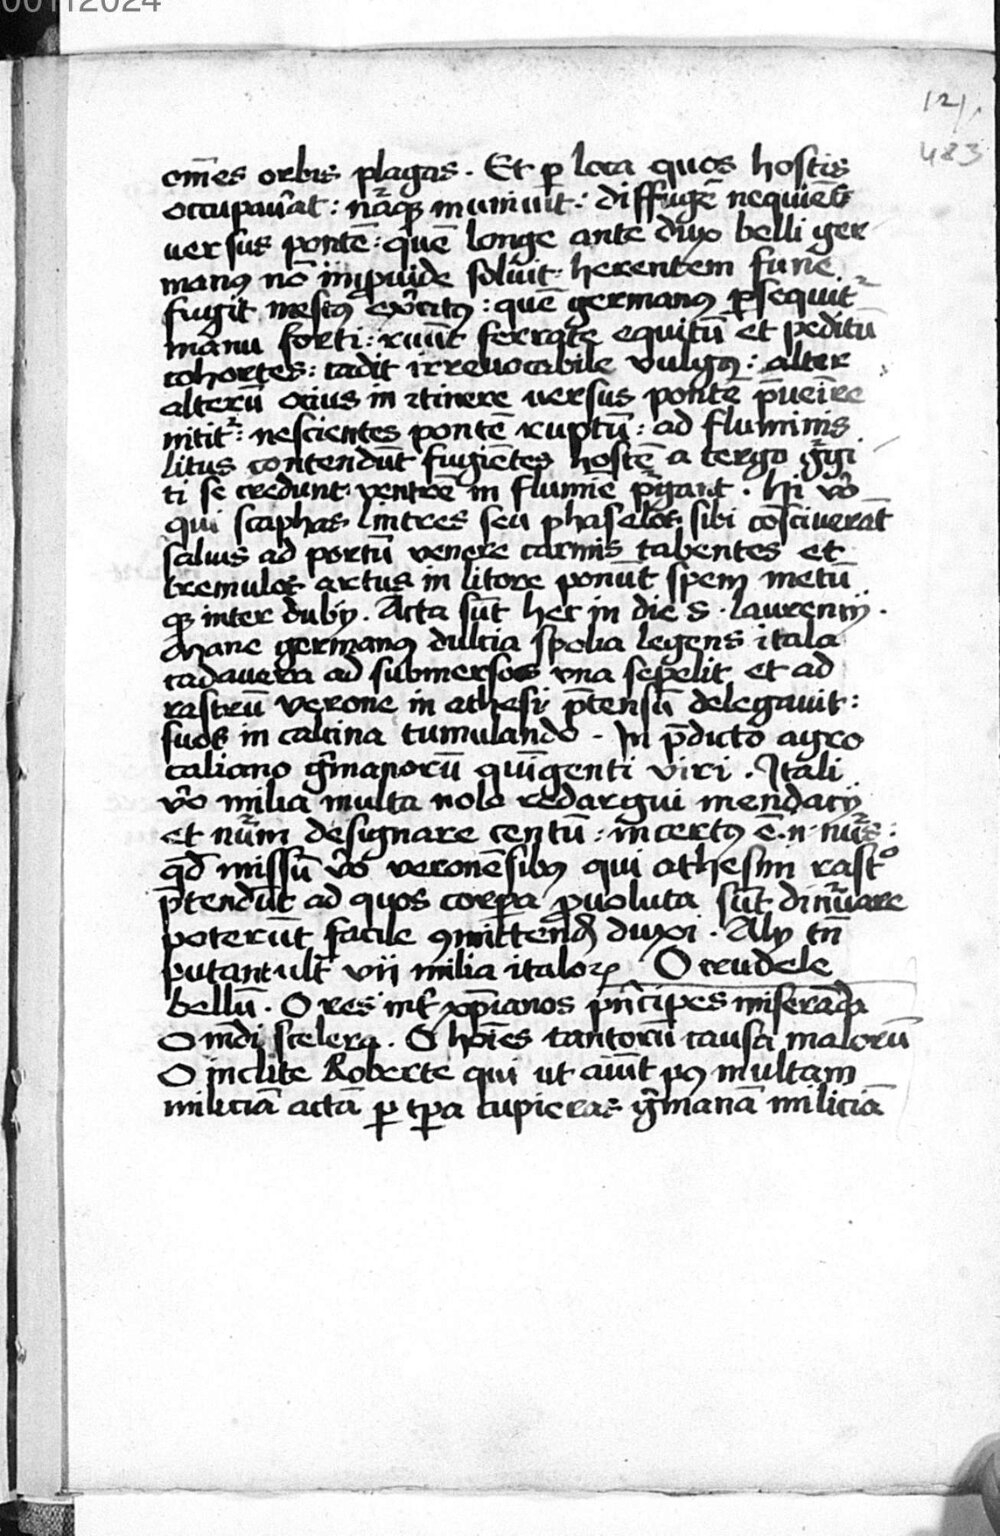 00112024
121
483
om̄es orbis plagas. Et ꝑ loca quos hostis
occupau̓at: nāqꝫ muniuit: diffugē nequiēs
uersus pontē: quē longe ante dux belli ger
manꝰ nō īprouide soluit: herentem fune
fugit mestꝰ exercitꝰ: quē germanus ꝑsequit
manu forti: ruūt ferrate equitū et peditū
cohortes: cadit irreuocabile vulgꝰ: alter
alterū ocius in itinere uersus pontē p̄ueīre
nitit: nescientes pontē ruptū: ad fluminis
litus contendūt fugiētes hostē a tergo
ti se credunt ventrē in flumīe. Hi v̓o
qui scaphas lintres seu phaselos sibi cōsciuerāt
saluis ad portū venere carinis tabentes et
tremulos artus in litore ponūt spem metū
qꝫ inter dubij. Acta sūt hec in die S. laurentij.
Mane germanꝰ dulcia spolia legens itala
cadauera ad submersos vna sepelit et ad
rastrū verone in athesi p̄tensū delegauit:
suos in calcina tumulando. In p̄dicto agro
caliano g̓manorū quīgenti viri. Itali
v̓o milia multa nolo redargui mendacij
et nūm designare centū: incertꝰ ē. n. nūs:
qd̄ missū v̓o veronēsibꝰ qui athesim rastᵒ
p̄tendūt ad quos corpa ꝓuoluta sūt dinūare
poterūt facile ꝯmittendū duxi. Alij tn̄
putant ult̄ vij milia italoꝝ O crudele
bellū. O res int̄ xp̄ianos p̓ncipes miserāda
O mūdi scelera. O hoīes tantorū causa malorū
O inclite Roberte qui ut aiūt pꝰ multam
miliciā actā ꝑ tp̄a cupieras g̓manā miliciā